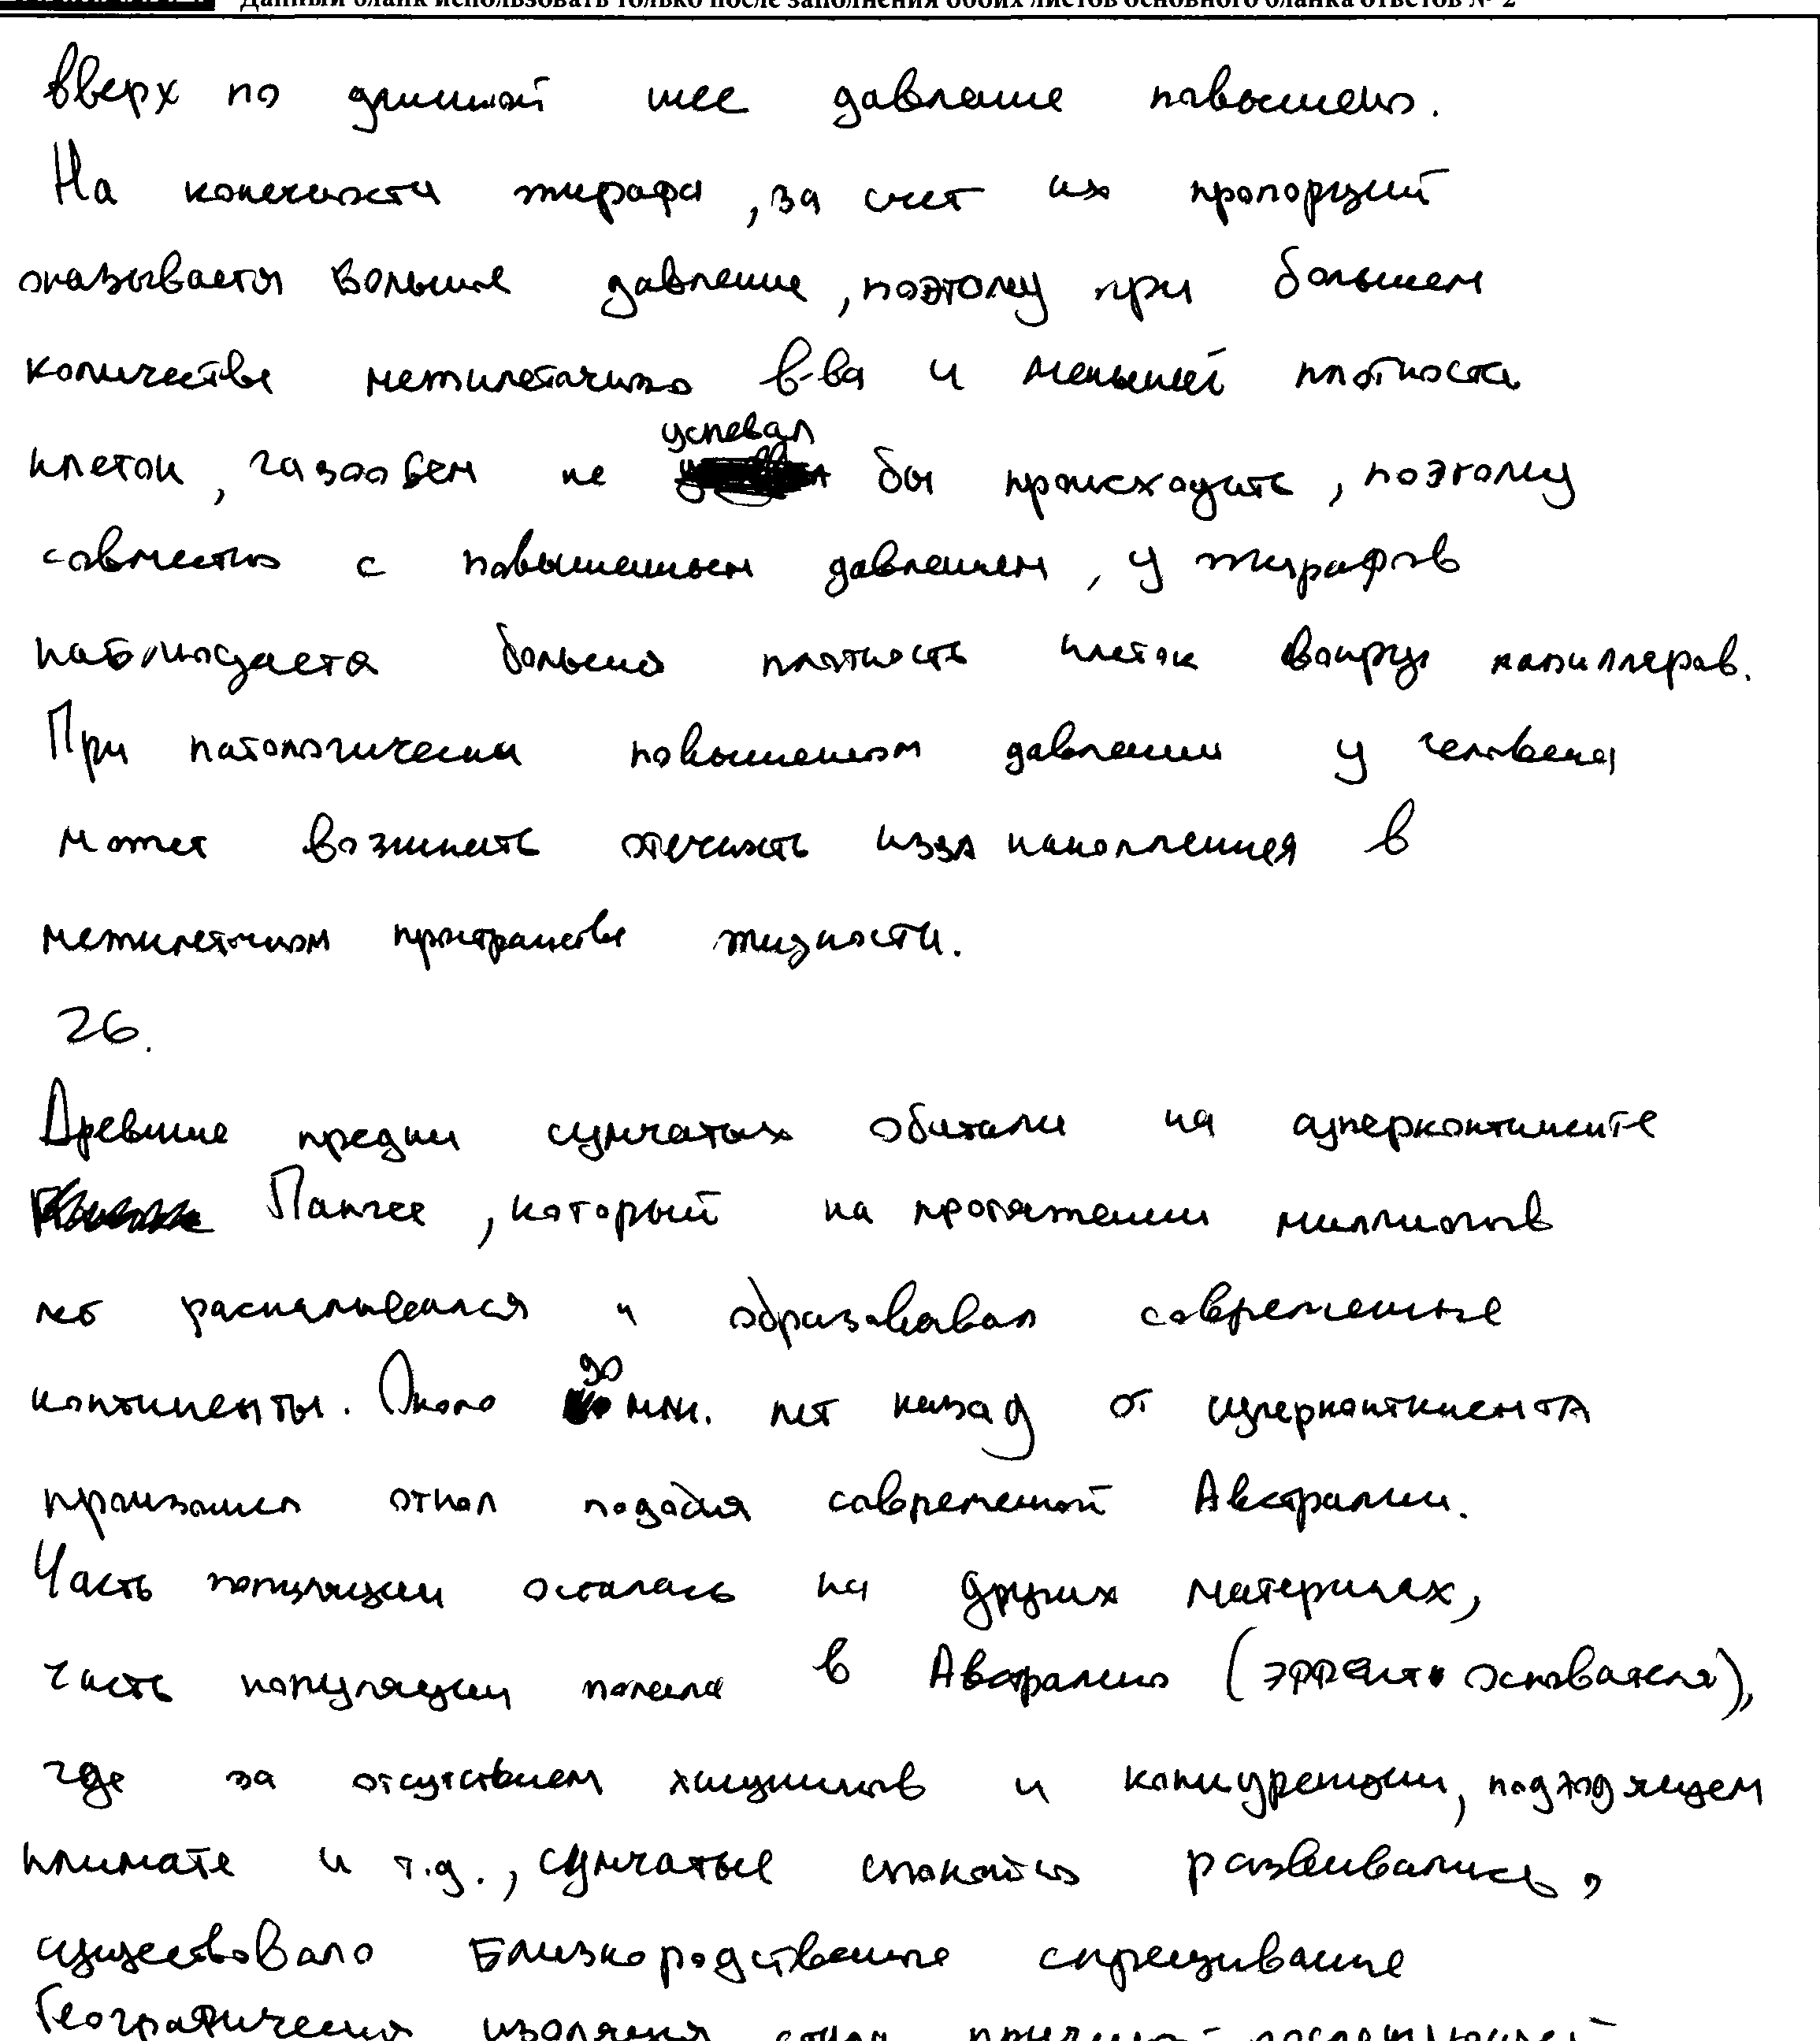 Данный бланк использовать только после заполнения обоих листов основного бланка ответов № 2
вверх по длинной шее давление повышено.
На конечности жирафа, за счет их пропорций
оказывается больше давление, поэтому при большем
количестве межклеточного в-ва и меньшей плотности
клеток, газообмен не успевал бы происходить, поэтому
совместно с повышенным давлением, у жирафов
наблюдается больша плотность клеток вокруг капилляров.
При патологически повышенном давлении у человека
может возникать отечность изза накопления в
межклеточном пространстве жидкости.
26.
Древние предки сумчатых обитали на суперконтиненте
Пангее, который на протяжении миллионов
лет раскалывался и образовавал современные
континенты. Около 90 млн. лет назад от суперконтинента
произошел откол подобия современной Австралии.
Часть популяции осталась на других материках,
часть популяции попала в Австралию (эффект основателя),
где за отсутствием хищников и конкуренции, подходящем
климате и т.д., сумчатые спокойно развивались,
существовало близкородственное скрещивание
Географическая изоляция стала причиной последующей